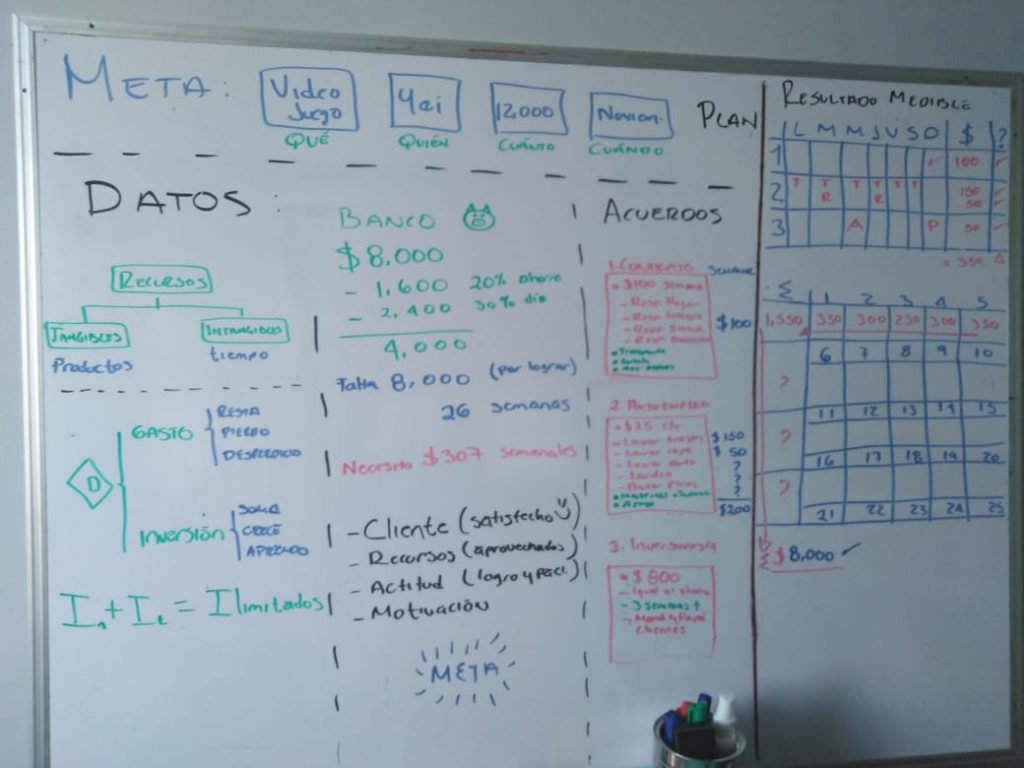 META:
Video Juego
QUÉ
Yai
QUIÉN
12,000
CUÁNTO
CUÁNDO
PLAN
DATOS:
RECURSOS
TANGIBLES
INTANGIBLES
Productos
tiempo
D
GASTO
RESTA
PIERDO
DESPERDICIO
INVERSIÓN
SUMA
CRECE
APRENDO
= Ilimitados
BANCO
$8.000
- 1,600 20% ahorro
- 2,400 30% dia
4,000
Falta 8,000 (por lograr)
26 semanas
Necesito $307 semanales
- Cliente (satisfecho)
- Recursos (aprovechados)
- Actitud
- Motivación
META
ACUERDOS
1. CONTRATO SEMANAL
• $100 semana
$100
2. AUTOEMPLEO
• $25 c/u
$150
$ 50
?
?
?
$200
3. Inversionista
• $800
- 3 semanas +
- Mamá y Papá
RESULTADO MEDIBLE
L M M J V S D $ ?
1 ✓ 100 ✓
2 T T T T T T 150 ✓
R R 50 ✓
3 A P 50 ✓
= 350
Σ 1 2 3 4 5
1,550 350 300 250 300 350
6 7 8 9 10
?
11 12 13 14 15
?
16 17 18 19 20
?
21 22 23 24 25
Σ $8,000 ✓